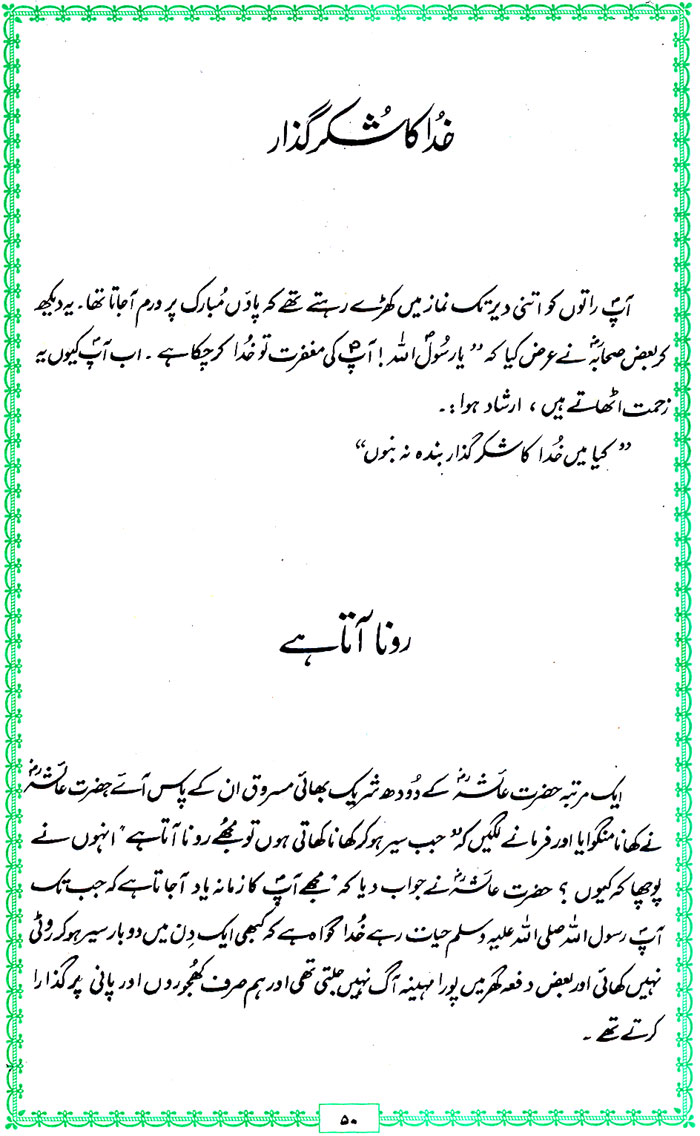 خُدا کا شُکر گذار
آپؐ راتوں کو اتنی دیر تک نماز میں کھڑے رہتے تھے کہ پاؤں مُبارک پر ورم آجاتا تھا۔ یہ دیکھ
کر بعض صحابہؓ نے عرض کیا کہ ”یا رسُولؐ اللہ! آپؐ کی مغفرت تو خُدا کر چکا ہے۔ اب آپؐ کیوں یہ
زحمت اٹھاتے ہیں، ارشاد ہوا:۔
” کیا میں خُدا کا شکر گذار بندہ نہ بنوں“
رونا آتا ہے
ایک مرتبہ حضرت عائشہؓ کے دُودھ شریک بھائی مسروق ان کے پاس آئے حضرت عائشہؓ
نے کھانا منگوایا اور فرمانے لگیں کہ ”جب سیر ہو کر کھانا کھاتی ہوں تو مجھے رونا آتا ہے“ انہوں نے
پوچھا کہ کیوں؟ حضرت عائشہؓ نے جواب دیا کہ ”مجھے آپؐ کا زمانہ یاد آجاتا ہے کہ جب تک
آپؐ رسول اللہ صلی اللہ علیہ وسلم حیات رہے خُدا گواہ ہے کہ کبھی ایک دِن میں دو بار سیر ہو کر روٹی
نہیں کھائی اور بعض دفعہ گھر میں پورا مہینہ آگ نہیں جلتی تھی اور ہم صرف کھجوروں اور پانی پر گذارا
کرتے تھے۔
۵۰